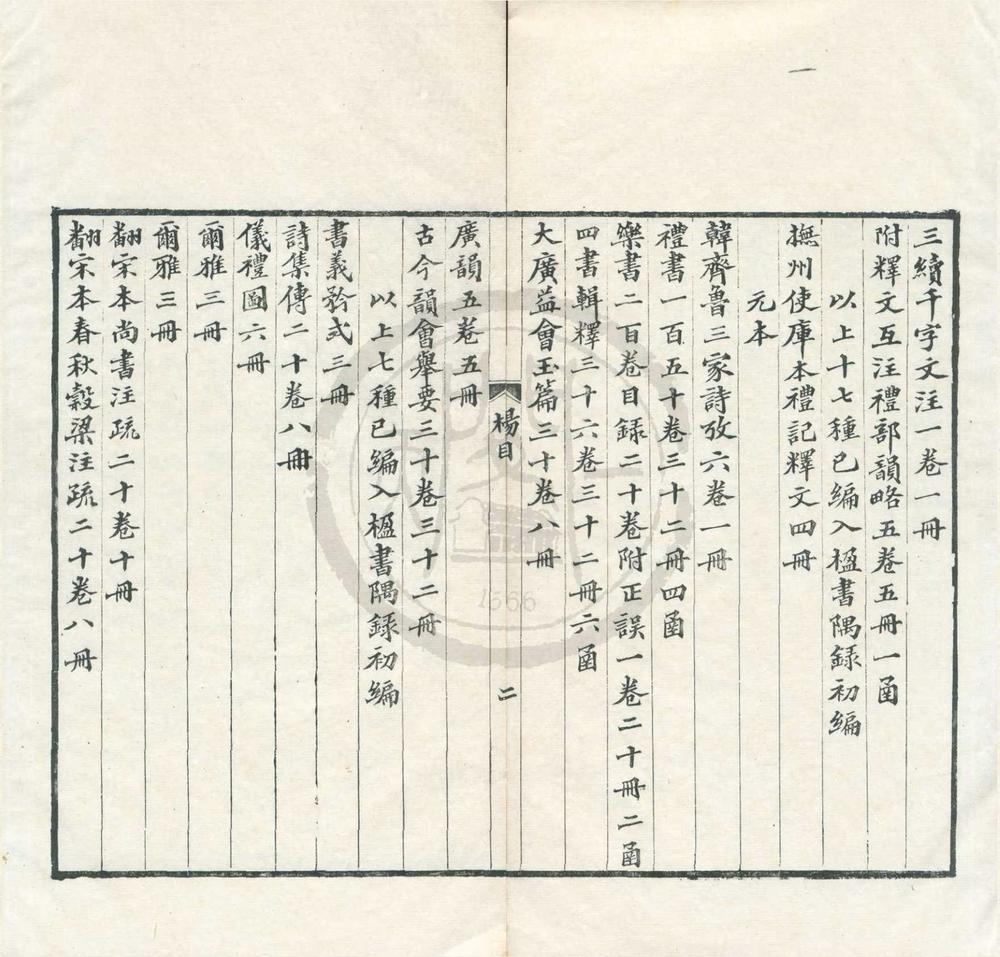 三續千字文注一卷一冊
附釋文互注禮部韻略五卷五冊一函
以上十七種已編入楹書隅録初編
撫州使庫本禮記釋文四冊
元本
韓齊魯三家詩攷六卷一冊
禮書一百五十卷三十二冊四函
樂書二百卷目録二十卷附正誤一卷二十冊二函
四書輯釋三十六卷三十二冊六函
大廣益會玉篇三十卷八冊
楊目
二
廣韻五卷五冊
古今韻會舉要三十卷三十二冊
以上七種已編入楹書隅録初編
書義矜式三冊
詩集傳二十卷八冊
儀禮圖六冊
爾雅三冊
爾雅三冊
翻宋本尚書注疏二十卷十冊
翻宋本春秋穀梁注疏二十卷八冊
一
1366